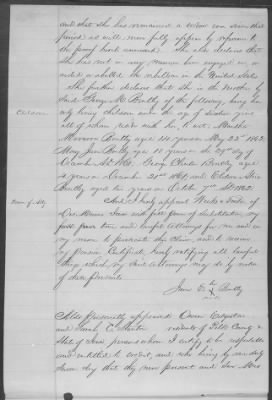 and that she has remained a widow ever since that
period as will more fully appear by reference to
the proof hereto annexed. She also declares that
she has not in any manner been engaged in, or
aided or abetted the rebellion in the United States
She further declares that she is the Mother by
said George M. Bentley of the following, being her
only living children under the age of sixteen years
all of whom reside with her, to wit: Martha
Children
Bentley aged years May 22nd 1862
Mary Jane Bentley aged years on the day of
December George Bentley aged
years on December 20th and
Bentley aged two years on October 7th 1862
Power of Atty
And I hereby appoint of
Des Moines Iowa with full power of substitution, my
full power true and lawful Attorneys for me and in
my name to prosecute this claim, and to receive
my Pension Certificate, hereby ratifying all lawful
things which my said Attorneys may do by virtue
of these presents.
Jane her Bentley
mark
Also Personally appeared Owen
and Sarah residents of Polk County &
State of Iowa persons whom I certify to be respectable
and entitled to credit, and who being by me duly
sworn say that they were present and saw